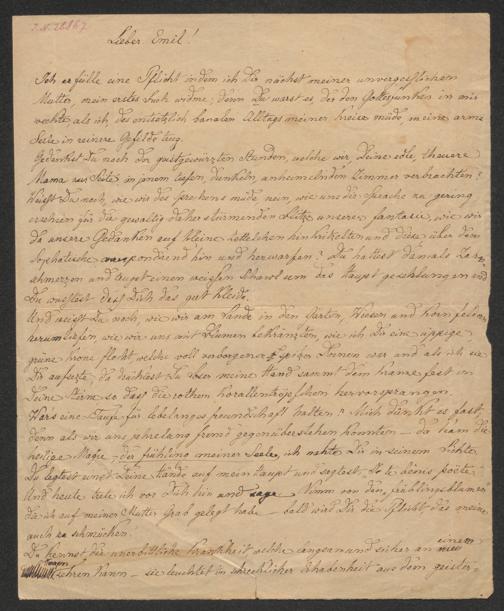 Lieber Emil!
Ich erfülle eine Pflicht indem ich Dir nächst meiner unvergesslichen
Mutter, mein erstes Buch widme, denn Du warst es, der den Gottesfunken in mir
weckte als ich des entsetzlich banalen Alltags meiner Kreise müde, meine arme
Seele in reinere Gefilde trug.
Gedenkst Du noch der geistgewürzten Stunden, welche wir, Deine edle, theuere
Mama zur Seite in jenem tiefen, dunkeln, anheimelnden Zimmer verbrachten?
Weisst Du noch, wie wir des Sprechens müde, wie uns die Sprache zu gering
erschien für die gewaltig daher stürmenden Blitze unserer Fantasie, wie wir
da unsere Gedanken auf kleine Zettelchen hinkritzelten und diese über dem
Sophatische hin und herwarfen? Du hattest damals
schmerzen und einen weissen Shawl um das Haupt geschlungen und
Du wusstest dass Dich das gut kleide.
Und weisst Du noch, wie wir am Rande in den Gärten, Wiesen und Kornfeldern
herumliefen, wie wir uns mit Blumen bekränzten, wie ich Dir eine üppige
grüne Krone flocht welche voll verborgener Dornen war und als ich sie
Dir aufsetzte, da drücktest Du selber meine Hand sammt dem Kranze fest in
Deine Stirne so dass die rothen Korallentröpfchen hervorsprangen.
War's eine Taufe für lebelanges Freundschaft halten? Mich dünkt es fast,
denn als wir uns jahrelang fremd gegenüberstehen konnten – da kam die
heilige Magie – der Frühling meiner Seele, ich nahte Dir in seinem Lichte
Du legtest mir Deine Hände auf mein Haupt und sagtest, poëta.
Und heute trete ich vor Dich hin und sage Nimm von den „Frühlingsblumen"
da ich auf meiner Mutter Grab gelegt habe – bald wird Dir die Pflicht, das meine
auch zu schmücken.
Du kennst die unerbittliche Krankheit welche langsam und sicher an einem
zehren kann – sie leuchtet in schrecklicher Erhabenheit aus dem geister-